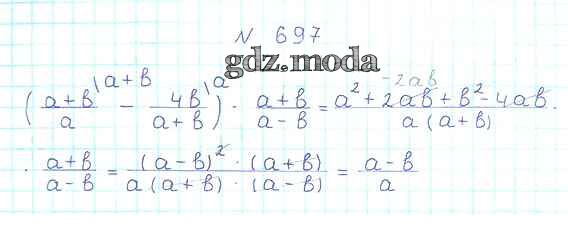 N 697
gdz.moda
-2ab
((a+b)/a \a+b − 4b/(a+b) \a) · (a+b)/(a−b) = (a²+2ab+b²−4ab)/(a(a+b)) ·
· (a+b)/(a−b) = ((a−b)² · (a+b))/(a(a+b) · (a−b)) = (a−b)/a